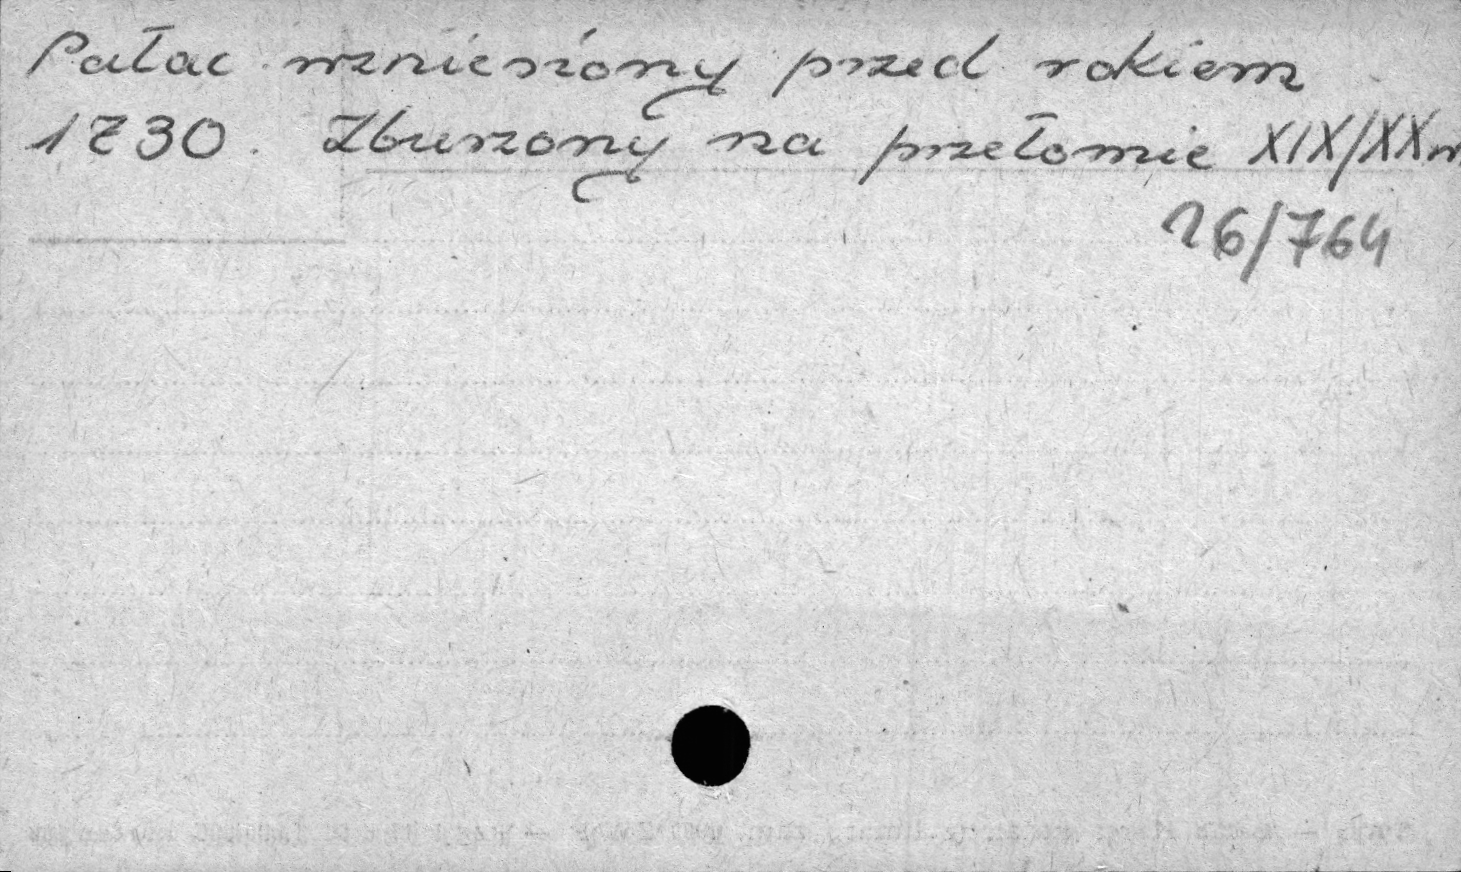 Pałac wzniesiony przed rokiem
1730. Zburzony na przełomie XIX/XX w
26/764